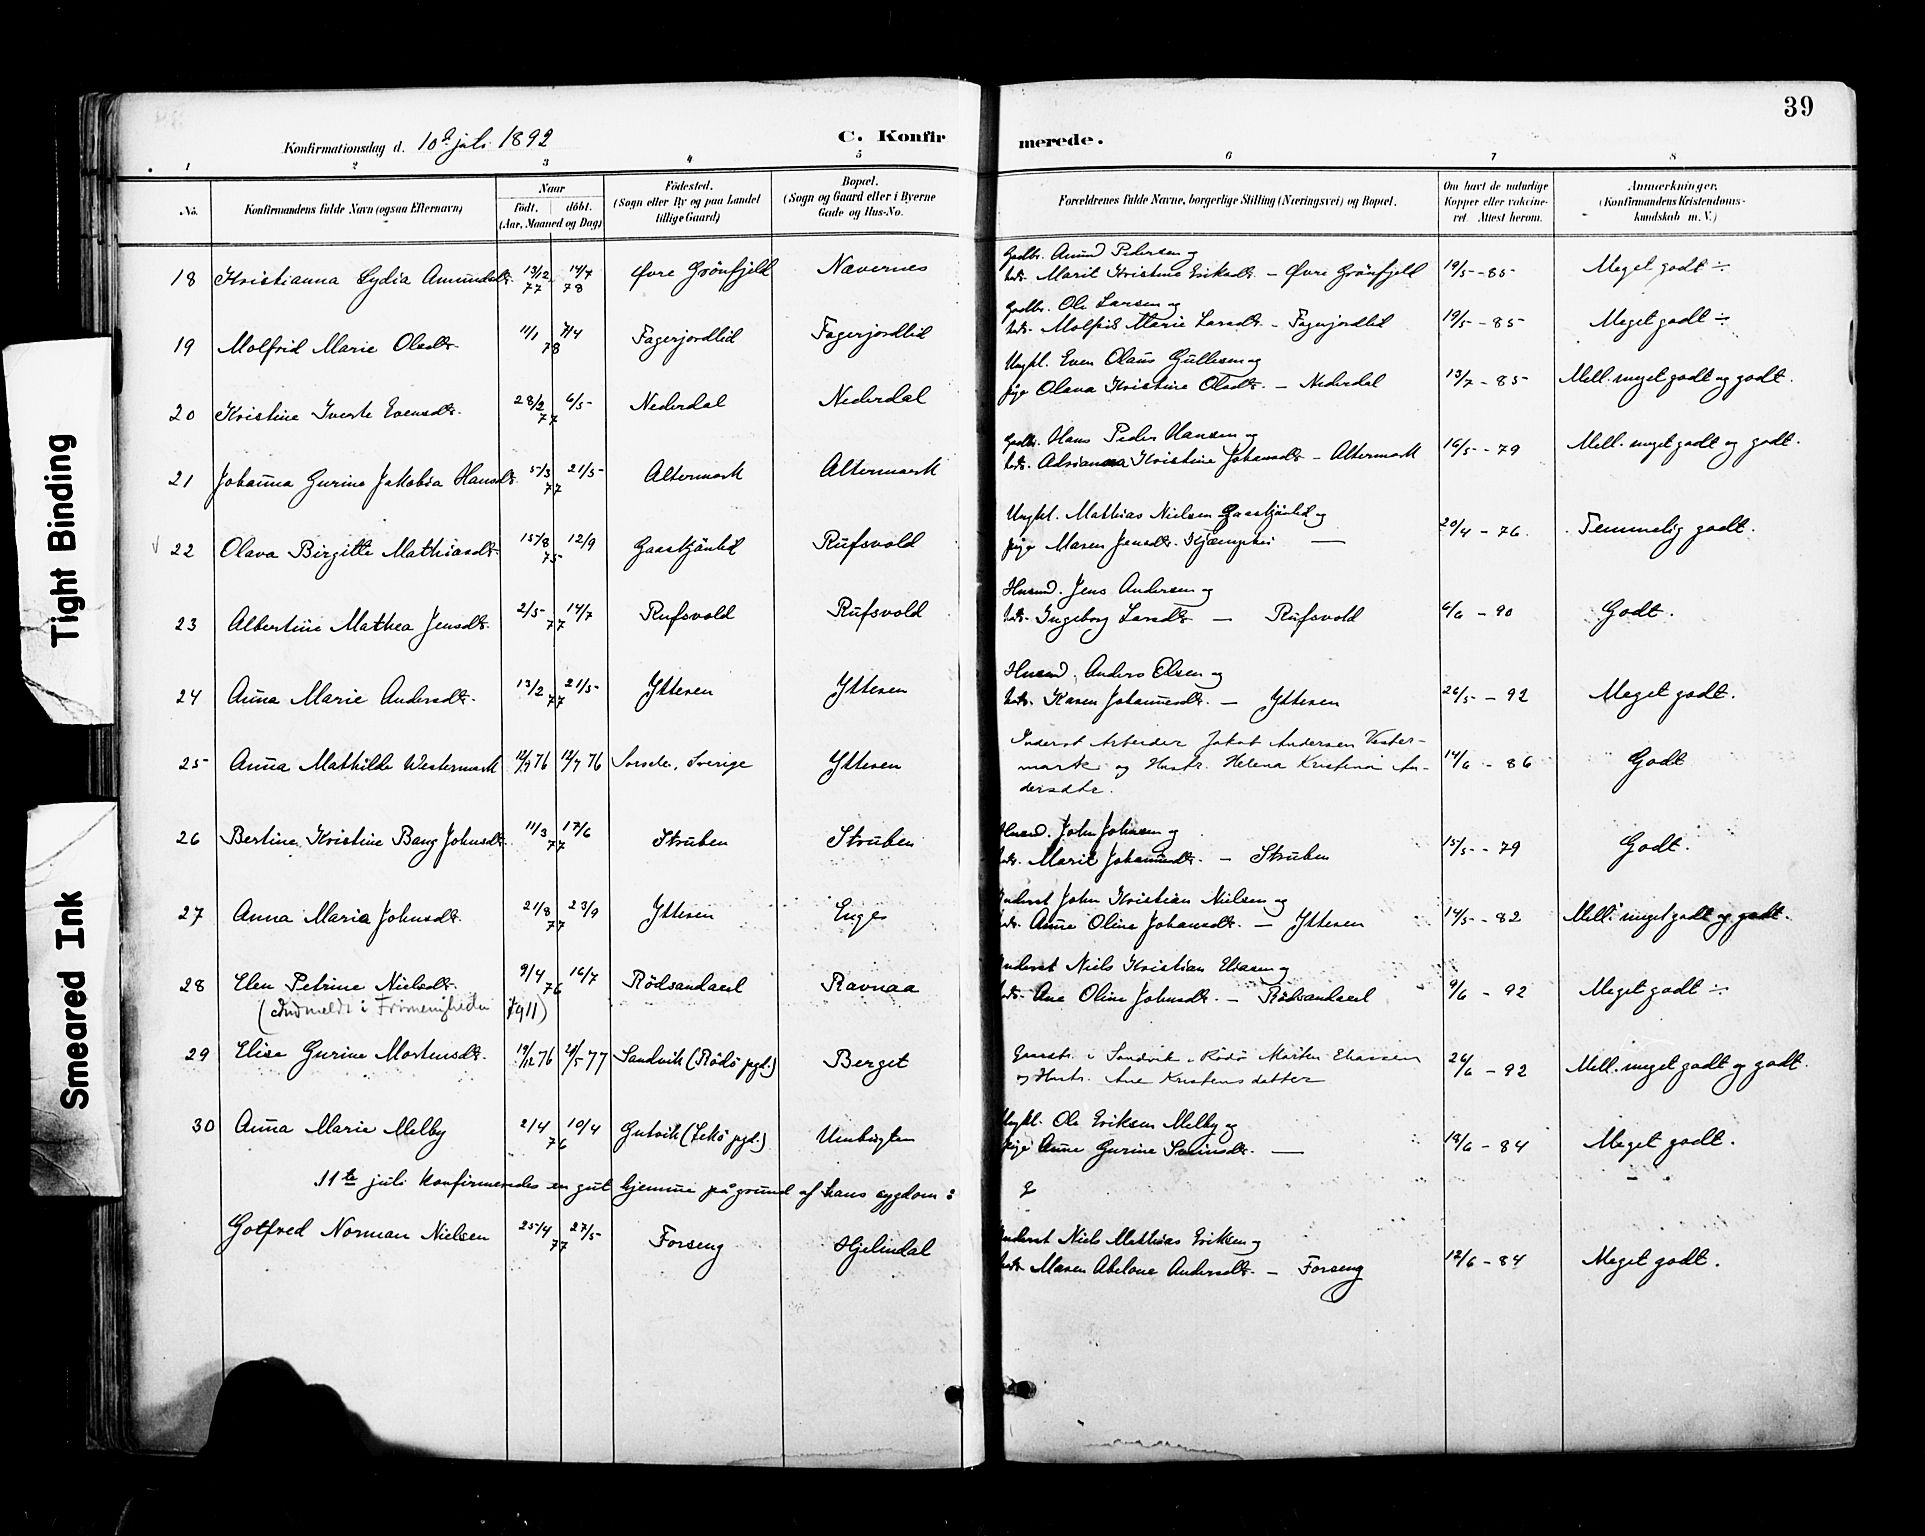 39
Konfirmationsdag d. 10de juli 1892
C. Konfirmerede.
1 2 3 4 5 6 7 8
No. Konfirmandens fulde Navn (ogsaa Efternavn) Naar født. døbt. (Aar, Maaned og Dag) Fødested. (Sogn eller By og paa Landet tillige Gaard) Bopæl. (Sogn og Gaard eller i Byerne Gade og Hus-No.) Forældrenes fulde Navne, borgerlige Stilling (Næringsvei) og Bopæl. Om havt de naturlige Kopper eller vaccineret. Attest herom. Anmærkninger. (Konfirmandens Kristendomskundskab m. V.)
18 Kristianna Lydia Amundsdtr. 13/12 77 14/7 78 Øvre Grönfjeld Nævernes Gaardbr. Amund Pedersen og Marit Kristine Eriksdtr. – Øvre Grönfjeld 19/5 - 85 Meget godt ÷
19 Molfrid Marie Olsdtr. 11/1 7/4 78 Fagerjordlid Fagerjordlid Gaardbr. Ole Larsen og Molfrid Marie Larsdtr. – Fagerjordlid 19/5 - 85 Meget godt ÷
20 Kristine Iverte Evensdtr. 28/2 6/5 77 Nederdal Nederdal Ungkl. Even Olaus Gullesen og pige Olava Kristine Olsdtr. – Nederdal 13/7 - 85 Mell. meget godt og godt.
21 Johanna Gurine Jakobia Hansdtr. 5/3 21/5 77 Altermark Altermark Gaardbr. Hans Peder Hansen og Adrianna Kristine Johansdtr – Altermark 16/5 - 79 Mell. meget godt og godt.
22 Olava Birgitte Mathiasdtr. 15/8 12/9 75 Gaastjönlid Rufsvold Ungkl. Mathias Nielsen Gaastjönlid og pige Maren Jensdtr. — 20/4 - 76. Temmelig godt.
23 Albertine Mathea Jensdtr. 2/5 14/7 77 Rufsvold Rufsvold Husmd. Jens Andersen og Ingeborg Larsdtr — Rufsvold 6/6 - 90 Godt.
24 Anna Marie Andersdtr. 13/2 21/5 77 Ytteren Ytteren Husmd. Anders Olsen og Karen Johannesdtr. — Ytteren 26/5 - 92 Meget godt.
25 Anna Mathilde Westermark 76 12/7 76 Sorsele, Sverige Ytteren Inderst Arbeider Jakob Andersen Vester-
mark og Hustr. Helena Kristina An-
dersdtr. 14/6 - 86 Godt
26 Bertine Kristine Bang Johnsdtr. 11/3 17/6 77 Struben Struben Husmd. John Johnsen og Marit Johannesdtr. – Struben 15/5 - 79 Godt.
27 Anna Maria Johnsdtr. 21/8 23/9 77 Ytteren Enge Inderst John Kristian Nielsen og Anne Oline Johansdtr. – Ytteren 14/5 - 82 Mell. meget godt og godt.
28 Elen Petrine Nielsdtr. 9/4 16/7 76 Rödsandaxel Ravnaa Inderst Niels Kristian Eliasen og Ane Oline Johnsdtr. – Rödsandaxel 9/6 - 92 Meget godt ÷
(Indmeldt i Frimenigheden
29 Elise Gurine Mortensdtr. 19/12 76 21/5 77 Sandvik (Rödö pgd.) Berget i Sandvik, Rödö Morten Eliassen
og Hustr. Ane Kristensdatter 26/6 - 92 Mell. meget godt og godt.
30 Anna Marie Melby 2/4 10/4 76 Gutvik (Lekö pgd.) Umbugten Ungkl. Ole Eriksen Melby og pige Anne Gurine — 18/6 - 84 Meget godt.
11te juli konfirmeredes en gut hjemme på grund af hans sygdom:
Gotfred Norman Nielsen 25/4 27/5 77 Forseng Hjelindal Inderst Niels Mathias Eriksen og Maren Abelone Andersdtr. – Forseng 12/6 - 84 Meget godt.
Tight Binding
Smeared Ink